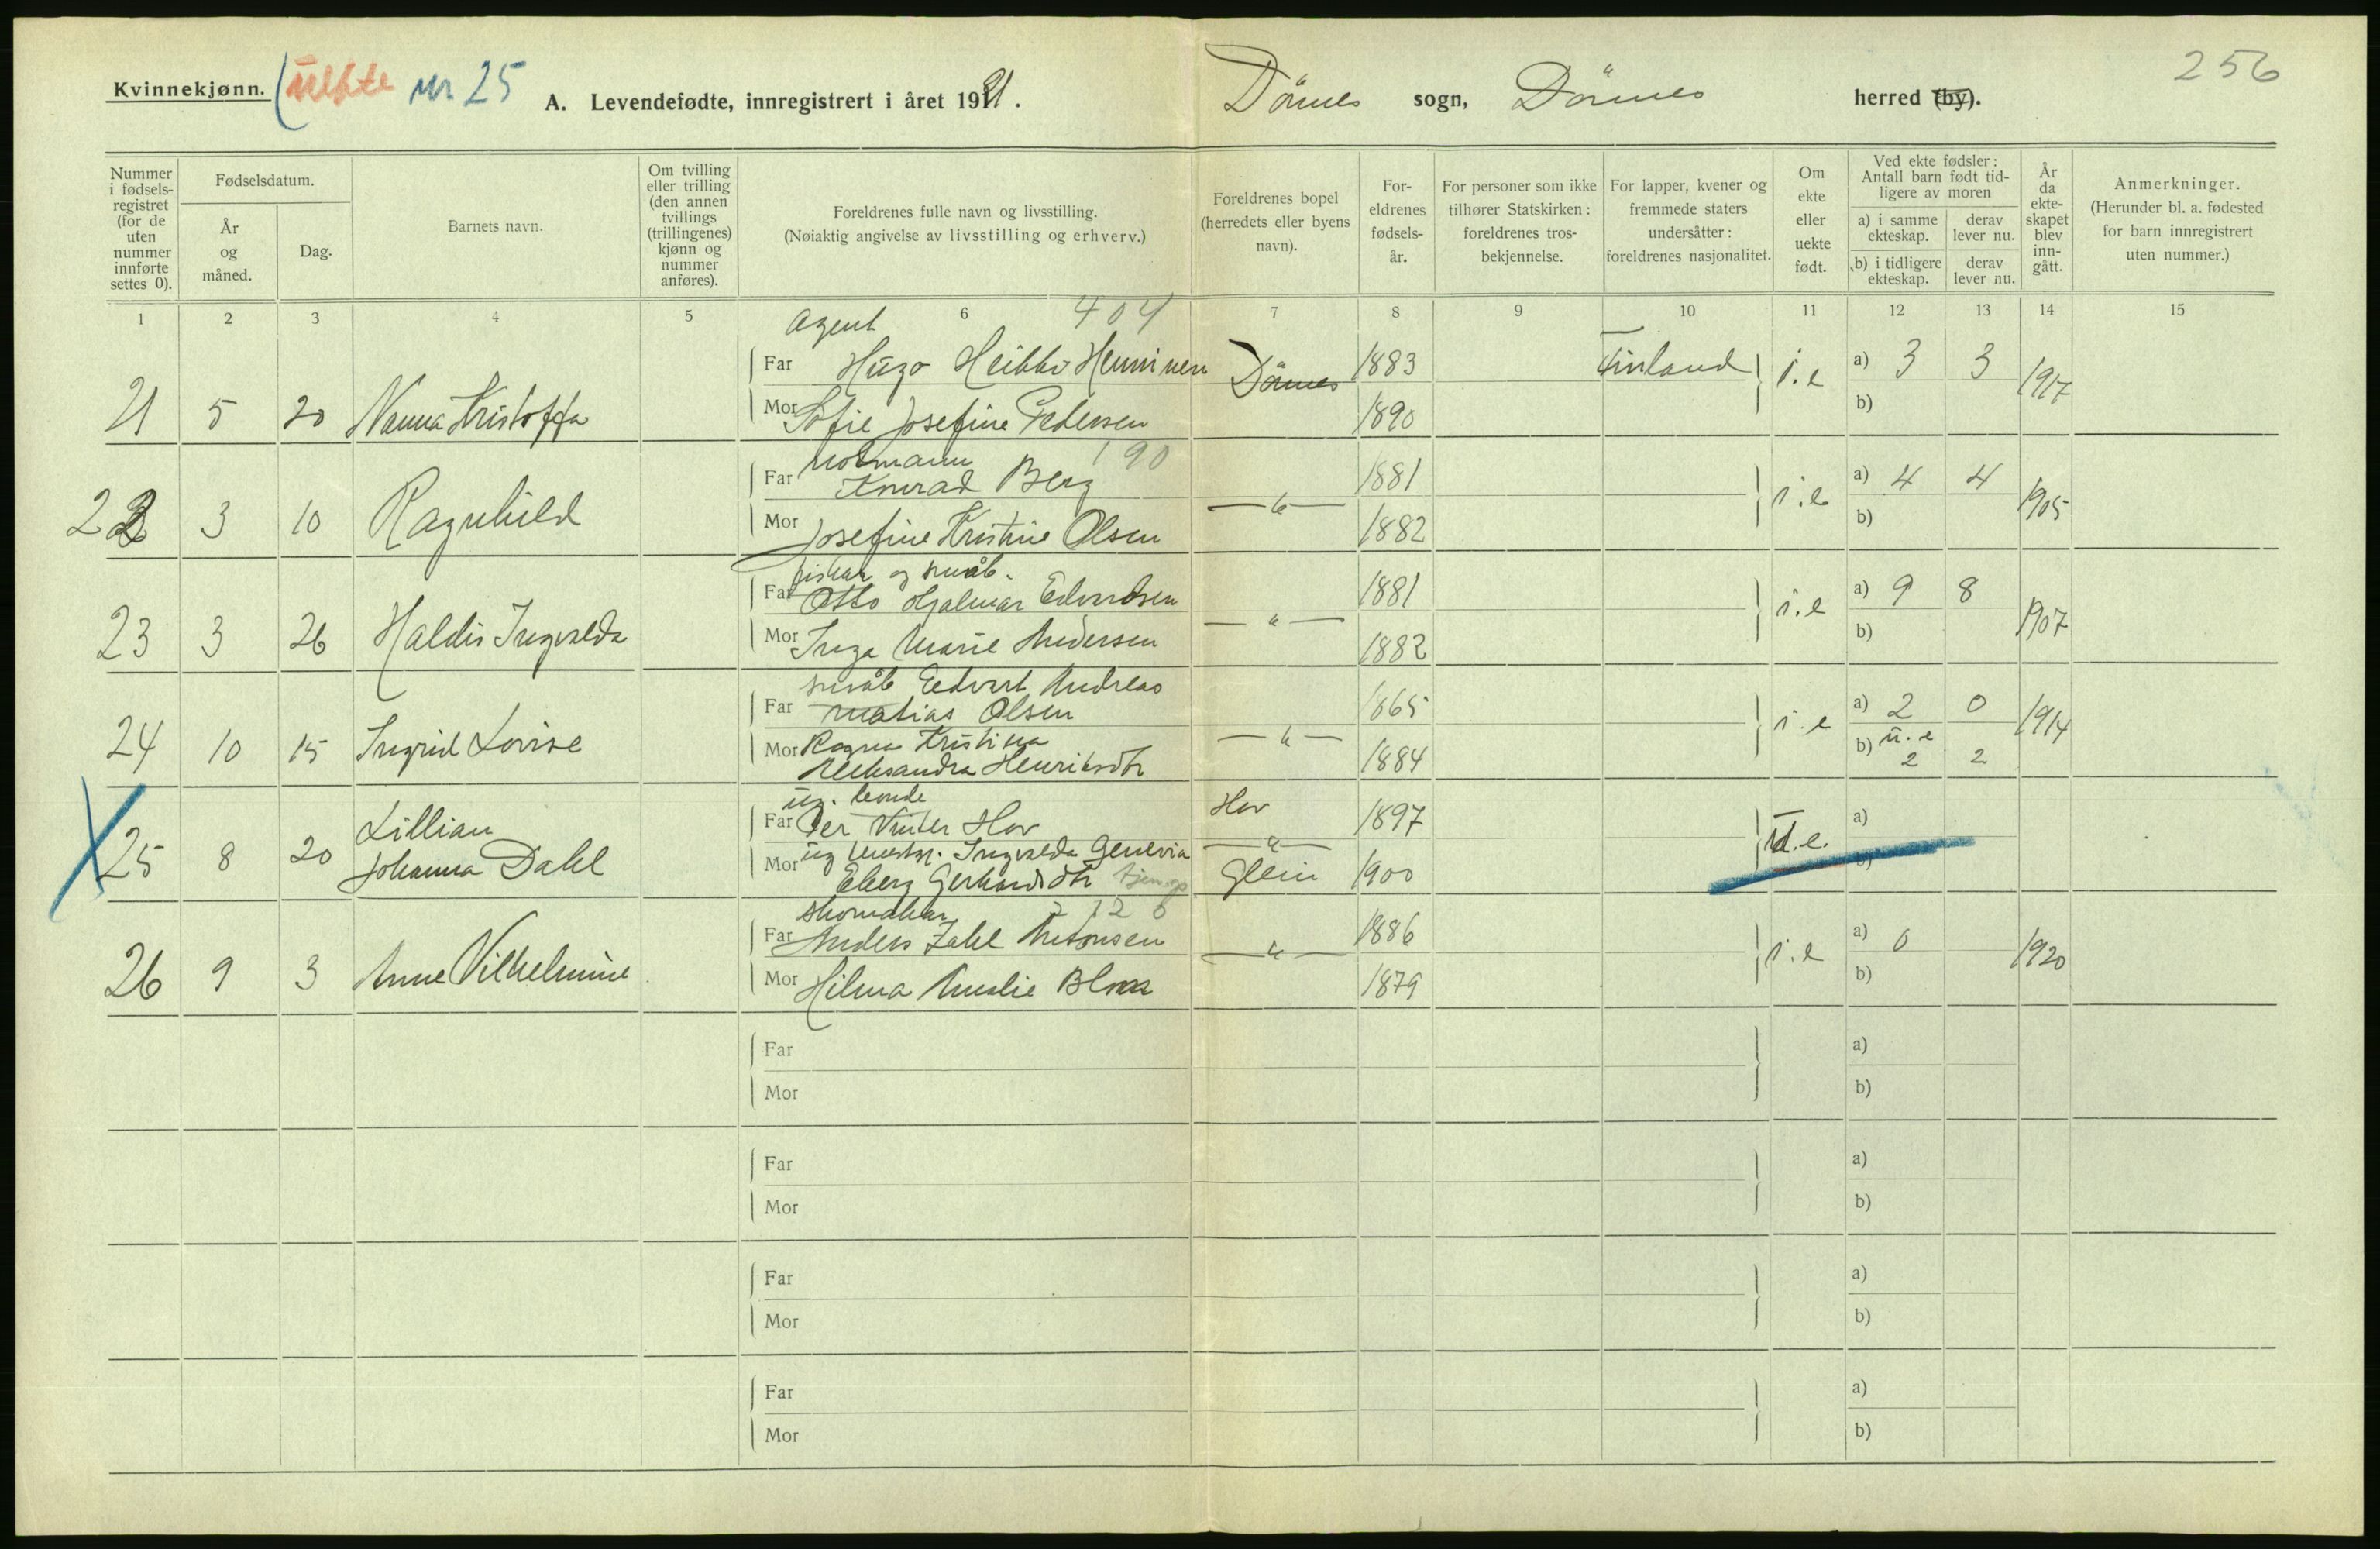 Kvinnekjønn. uekte nr 25
A. Levendefødte, innregistrert i året 1921.
Dönnes sogn, Dönnes herred (by).
256
Nummer i fødselsregistret (for de uten nummer innførte settes 0).
Fødselsdatum.
År og måned.
Dag.
Barnets navn.
Om tvilling eller trilling (den annen tvillings (trillingenes) kjønn og nummer anføres).
Foreldrenes fulle navn og livsstilling.
(Nøiaktig angivelse av livsstilling og erhverv.)
Foreldrenes bopel (herredets eller byens navn).
Foreldrenes fødselsår.
For personer som ikke tilhører Statskirken: foreldrenes trosbekjennelse.
For lapper, kvener og fremmede staters undersåtter: foreldrenes nasjonalitet.
Om ekte eller uekte født.
Ved ekte fødsler: Antall barn født tidligere av moren
a) i samme ekteskap. derav lever nu.
b) i tidligere ekteskap. derav lever nu.
År da ekteskapet blev inngått.
Anmerkninger.
(Herunder bl. a. fødested for barn innregistrert uten nummer.)
1 2 3 4 5 6 7 8 9 10 11 12 13 14 15
Agent 404
Far Hugo Heikki Henninen Dönnes 1883 Finland i.e a) 3 3 1917
21 5 20 Nanna Kristoffa
Mor Sofie Josefine Pedersen 1890 b)
notmann 190
Far Konrad Berg 1881 i.e a) 4 4 1905
22 3 10 Ragnhild — " —
Mor Josefine Kristine Olsen 1882 b)
fisker og småb.
Far Otto Hjalmar Edvardsen 1881 i.e a) 9 8 1907
23 3 26 Haldis Ingvalda — " —
Mor Inga Marie Andersen 1882 b)
småb Edvart Andreas
Far Matias Olsen 1865 i.e a) 2 0 1914
24 10 15 Ingrid Lovise — " —
Mor Ragna Kristina
Aleksandra Henriksdtr 1884 b) u.e 2 2
ug. bonde
Far Per Vinter Hov Hov 1897 u.e. a)
25 8 20 Lillian Johanna Dahl — " —
Mor ug Ingvalda Genevia
Eberg Gerhardsdtr Glein 1900 b)
skomaker 2 12 6
Far Anders Zahl Antonsen 1886 i.e a) 0 1920
26 9 3 Anne Vilhelmine — " —
Mor Hilma Amalie 1879 b)
Far a)
Mor b)
Far a)
Mor b)
Far a)
Mor b)
Far a)
Mor b)